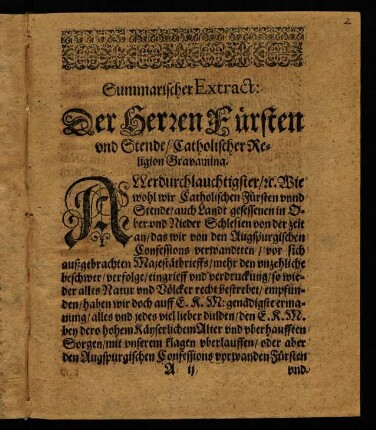 2
Summarischer Extract:
Der Herren Fürsten
vnd Stende/ Catholischer Re-
ligion Gravamina.
ALLerdurchlauchtigster/ ꝛc. Wie
wohl wir Catholischen Fürsten vnnd
Stende/ auch Landt gesessenen in O-
ber vnd Nieder Schlesien von der zeit
an/ das wir von den Augspurgischen
Confessions verwandtten/ vor sich
außgebrachten Majestätbrieffs/ mehr den vnzehliche
beschwer/ verfolge/ eingrieff vnd verdruckung/ so wie-
der alles Natur vnd Völcker recht bestrebet/ empfun-
den/ haben wir doch auff E. K. M: genädigste erma-
nung/ alles vnd jedes viel lieber dulden/ den E. K. M.
bey dero hohem Käyserlichem Alter vnd vberhaufften
Sorgen/ mit vnserem klagen vberlauffen/ oder aber
den Augspurgischen Confessions vorwanden Fürsten
A ij vnd.